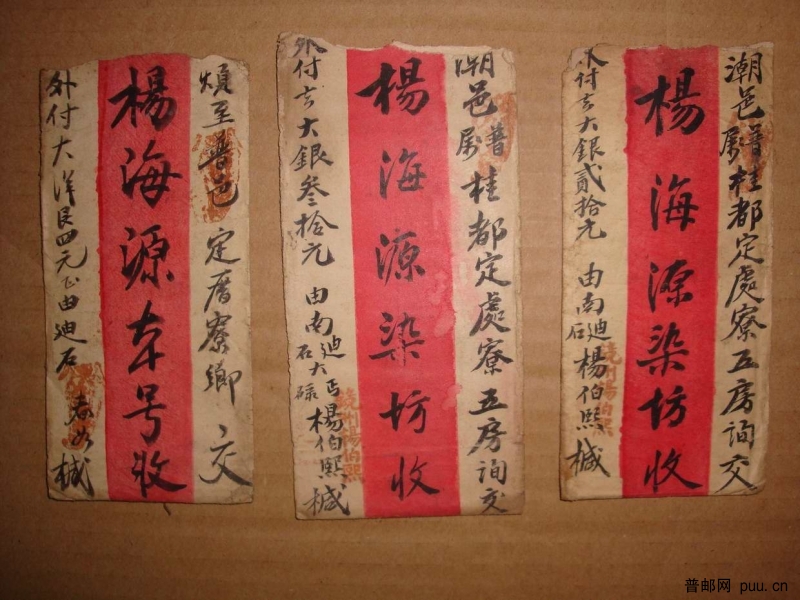 煩至普邑定厝寮鄉交
楊海源本号收
外付大洋艮四元正由迪石春如椷
潮邑普屬桂都定處寮五房詢交
楊海源染坊收
外付去大銀叁拾元由南迪石大正碌楊伯熙椷
饒州楊伯熙
潮邑普屬桂都定處寮五房詢交
楊海源染坊收
外付去大銀貳拾元由南迪石楊伯熙椷
饒州楊伯熙
普邮网 puu.cn